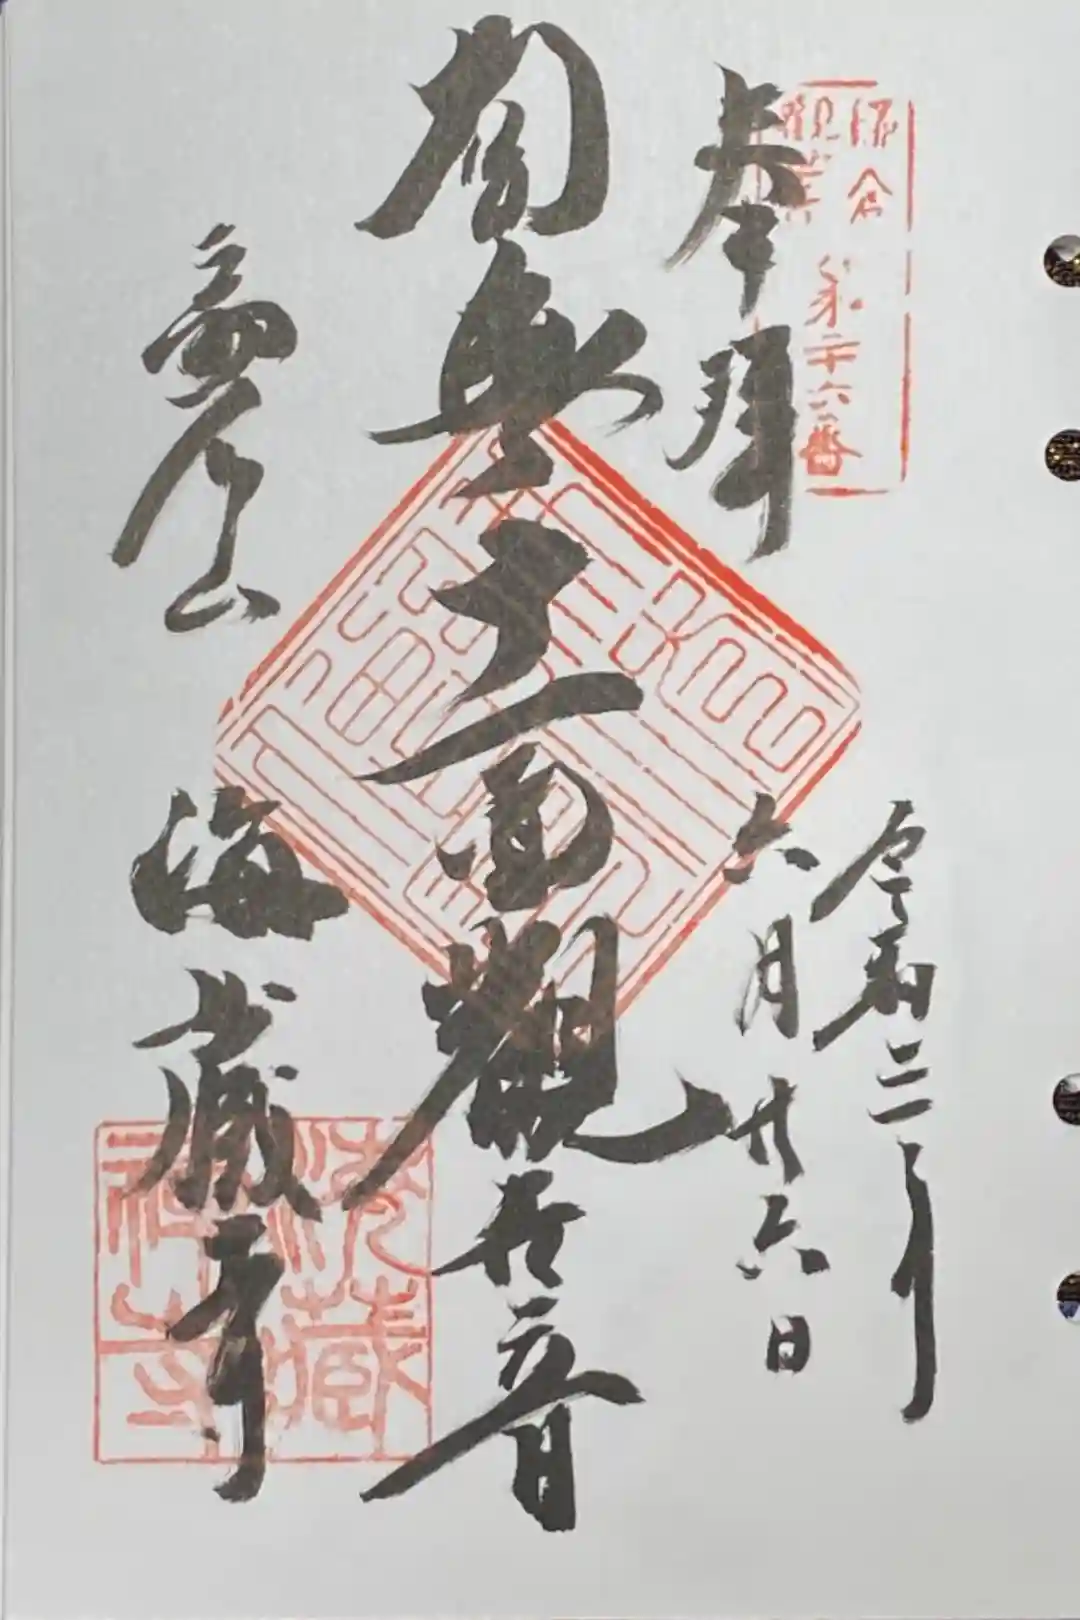 鎌倉
観音
第二十六番
奉拝
令和三年
六月廿六日
南無十一面観世音
扇谷山
海蔵寺
海蔵
禅寺